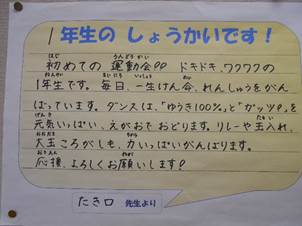 1年生の しょうかいです！
初めての 運動会!! ドキドキ、ワクワクの
1年生です。毎日、一生けん命、れんしゅうをがん
ばっています。ダンスは、「ゆうき100%」と「ガッツ!!」を
元気いっぱい、えがおで おどります。リレーや玉入れ、
大玉ころがしも、力いっぱいがんばります。
応援、よろしくお願いします！
たき口 先生より